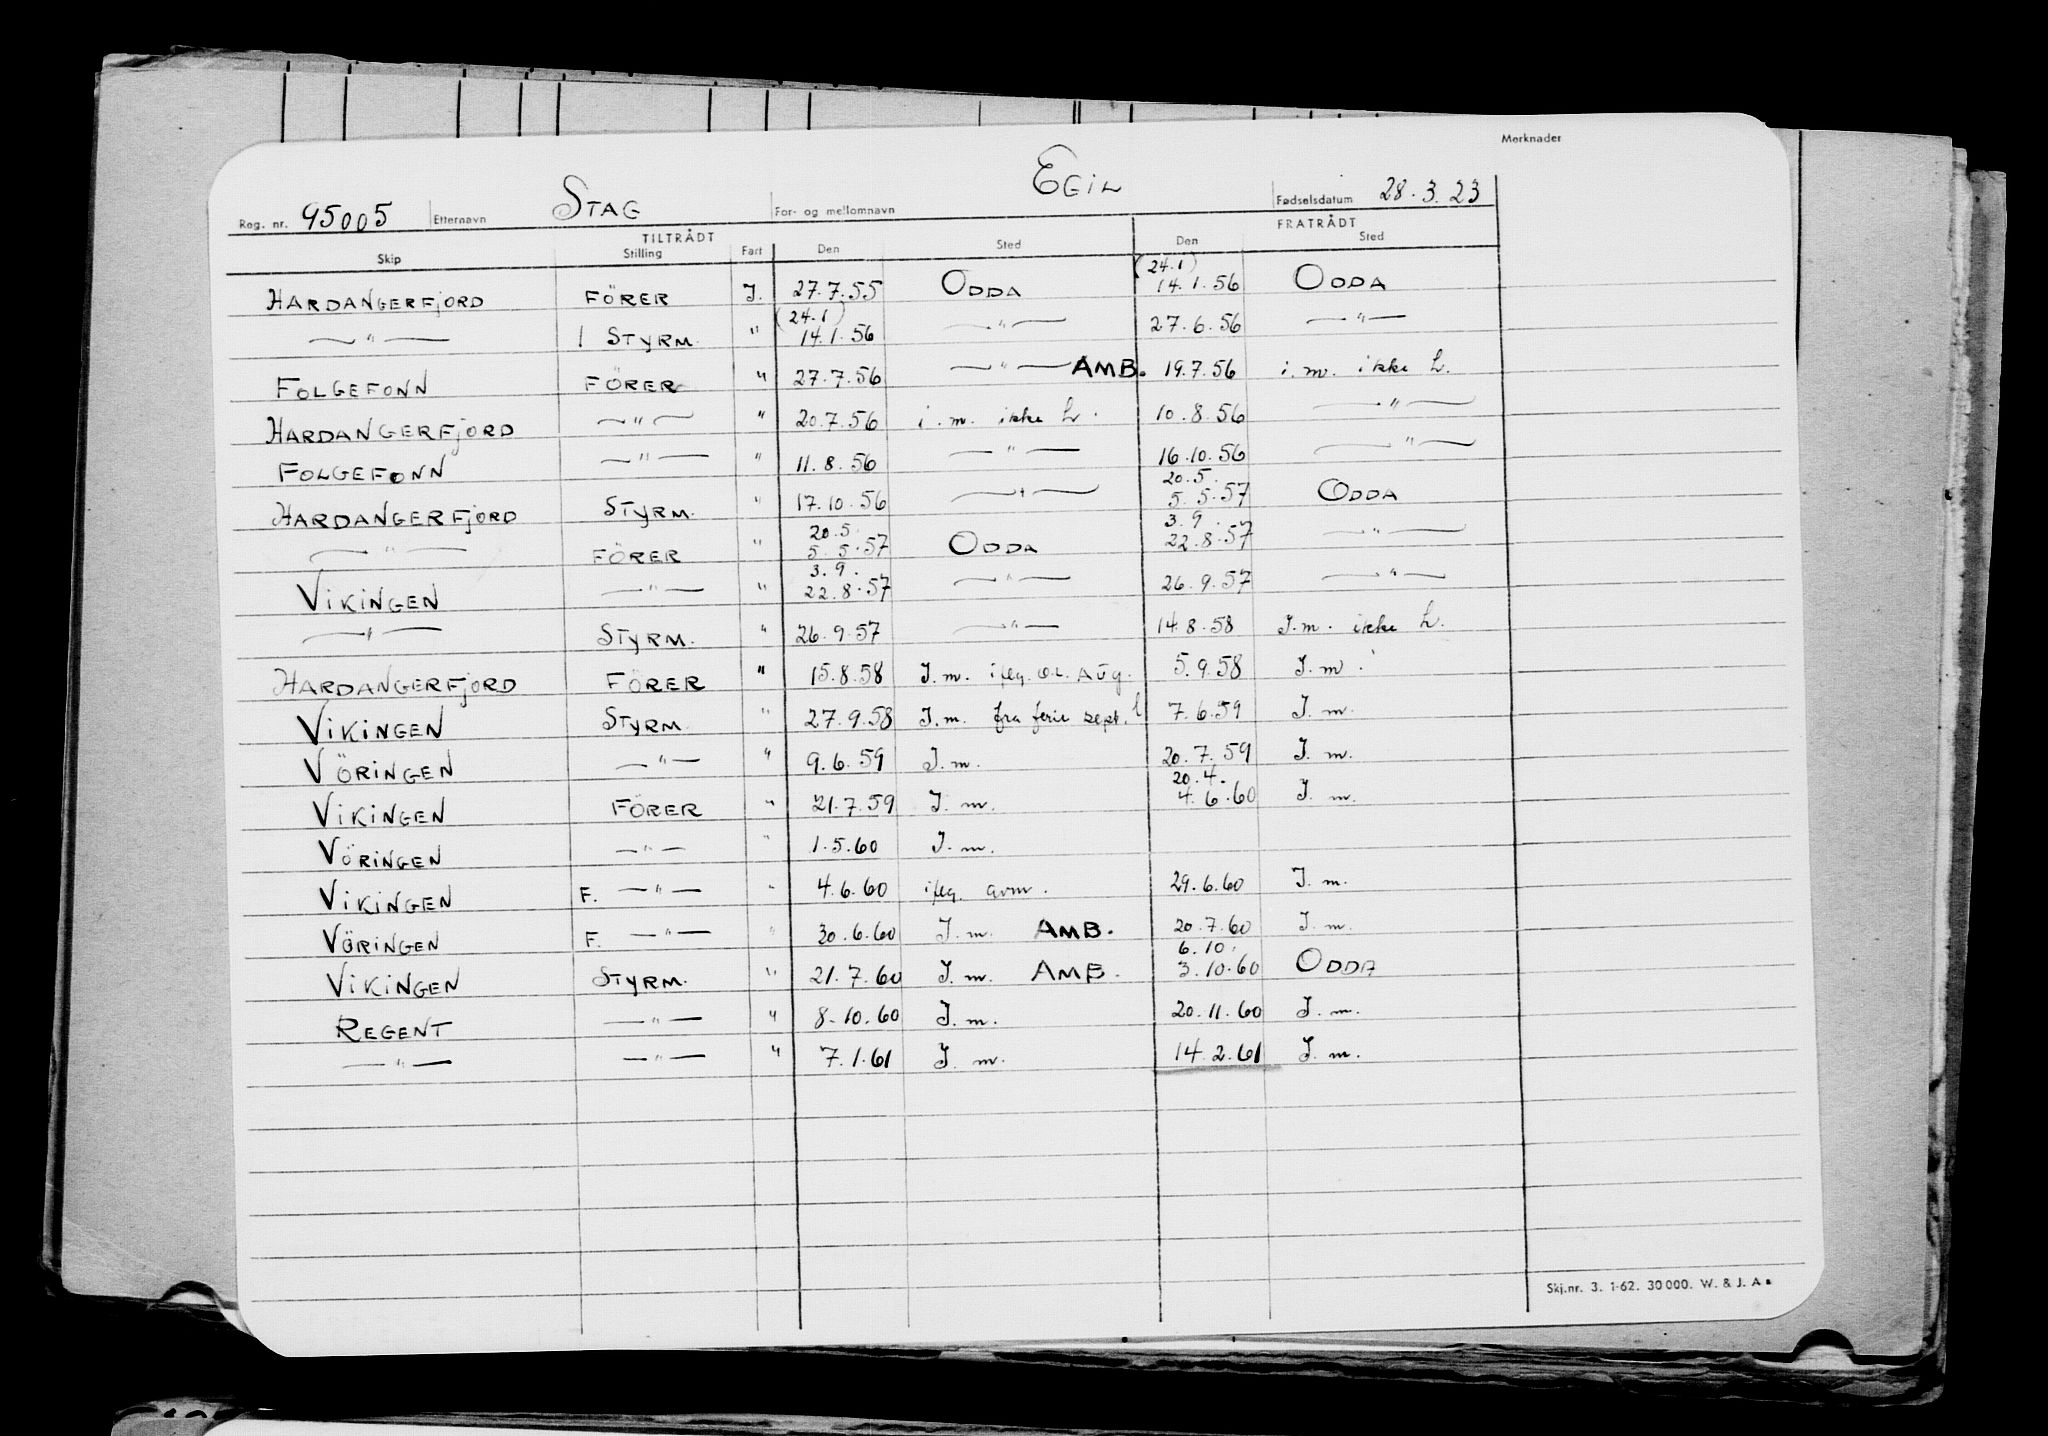 Merknader
Reg. nr. 95005 Etternavn STAG For- og mellomnavn EGIL Fødselsdatum 28.3.23
TILTRÅDT FRATRÅDT
Skip Stilling Fart Den Sted Den Sted
(24.1)
HARDANGERFJORD FÖRER J. 27.7.55 ODDA 14.1.56 ODDA
(24.1)
— " — 1 STYRM. " 14.1.56 — " — 27.6.56 — " —
FOLGEFONN FÖRER " 27.7.56 — " — AMB. 19.7.56 i.m. ikke h.
HARDANGERFJORD — " — " 20.7.56 i.m. ikke h. 10.8.56 — " —
FOLGEFONN — " — " 11.8.56 — " — 16.10.56 — " —
20.5.
HARDANGERFJORD STYRM. " 17.10.56 — " — 5.5.57 ODDA
20.5. 3.9.
— " — FÖRER " 5.5.57 ODDA 22.8.57 — " —
3.9.
VIKINGEN — " — " 22.8.57 — " — 26.9.57 — " —
— " — STYRM. " 26.9.57 — " — 14.8.58 J.m. ikke h.
HARDANGERFJORD FÖRER " 15.8.58 J.m. iflg. O.L. AUG. 5.9.58 J.m.
VIKINGEN STYRM. " 27.9.58 J.m. fra ferie sept. 7.6.59 J.m.
VÖRINGEN — " — " 9.6.59 J.m. 20.7.59 J.m.
20.4.
VIKINGEN FÖRER " 21.7.59 J.m. 4.6.60 J.m.
VÖRINGEN — " — " 1.5.60 J.m.
VIKINGEN F. — " — " 4.6.60 iflg. avm. 29.6.60 J.m.
VÖRINGEN F. — " — " 30.6.60 J.m. AMB. 20.7.60 J.m.
6.10.
VIKINGEN STYRM. " 21.7.60 J.m. AMB. 3.10.60 ODDA
REGENT — " — " 8.10.60 J.m. 20.11.60 J.m.
— " — — " — " 7.1.61 J.m. 14.2.61 J.m.
Skj.nr. 3. 1-62. 30000. W. & J. A